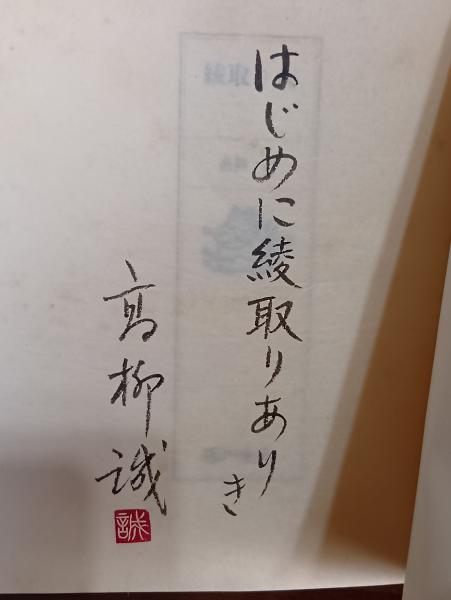 はじめに綾取りありき
高柳誠
誠